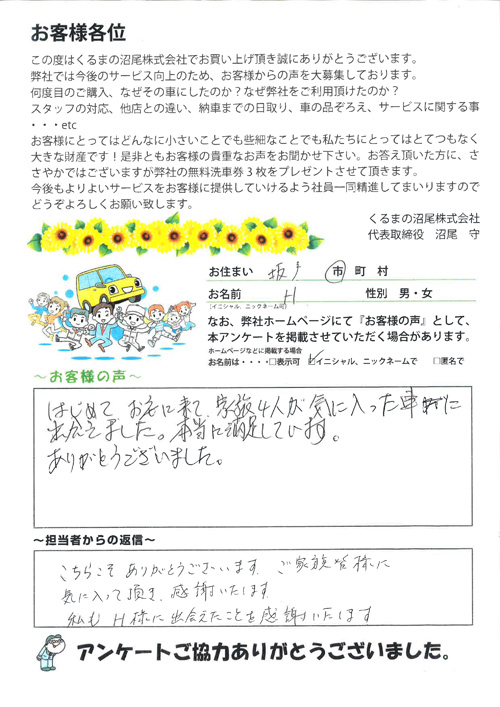 お客様各位
この度はくるまの沼尾株式会社でお買い上げ頂き誠にありがとうございます。
弊社では今後のサービス向上のため、お客様からの声を大募集しております。
何度目のご購入、なぜその車にしたのか？なぜ弊社をご利用頂けたのか？
スタッフの対応、他店との違い、納車までの日取り、車の品ぞろえ、サービスに関する事
・・・etc
お客様にとってはどんなに小さいことでも些細なことでも私たちにとってはとてつもなく
大きな財産です！是非ともお客様の貴重なお声をお聞かせ下さい。お答え頂いた方に、さ
さやかではございますが弊社の無料洗車券３枚をプレゼントさせて頂きます。
今後もよりよいサービスをお客様に提供していけるよう社員一同精進してまいりますので
どうぞよろしくお願い致します。
くるまの沼尾株式会社
代表取締役　沼尾　守
お住まい　坂戸　市　町　村
お名前　H　性別　男・女
（イニシャル、ニックネーム可）
なお、弊社ホームページにて『お客様の声』として、
本アンケートを掲載させていただく場合があります。
ホームページなどに掲載する場合
お名前は・・・・□表示可　☑イニシャル、ニックネームで　□匿名で
～お客様の声～
はじめて お店に来て、家族4人が気に入った車に
出会えました。本当に満足しています。
ありがとうございました。
～担当者からの返信～
こちらこそ ありがとうございます ご家族皆様に
気に入って頂き、感謝いたします
私も H様に出会えたことを感謝いたします
アンケートご協力ありがとうございました。